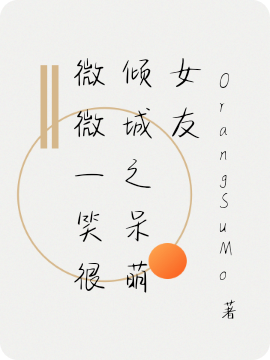 女友
倾城之呆萌
微微一笑很
OrangSuMo 著